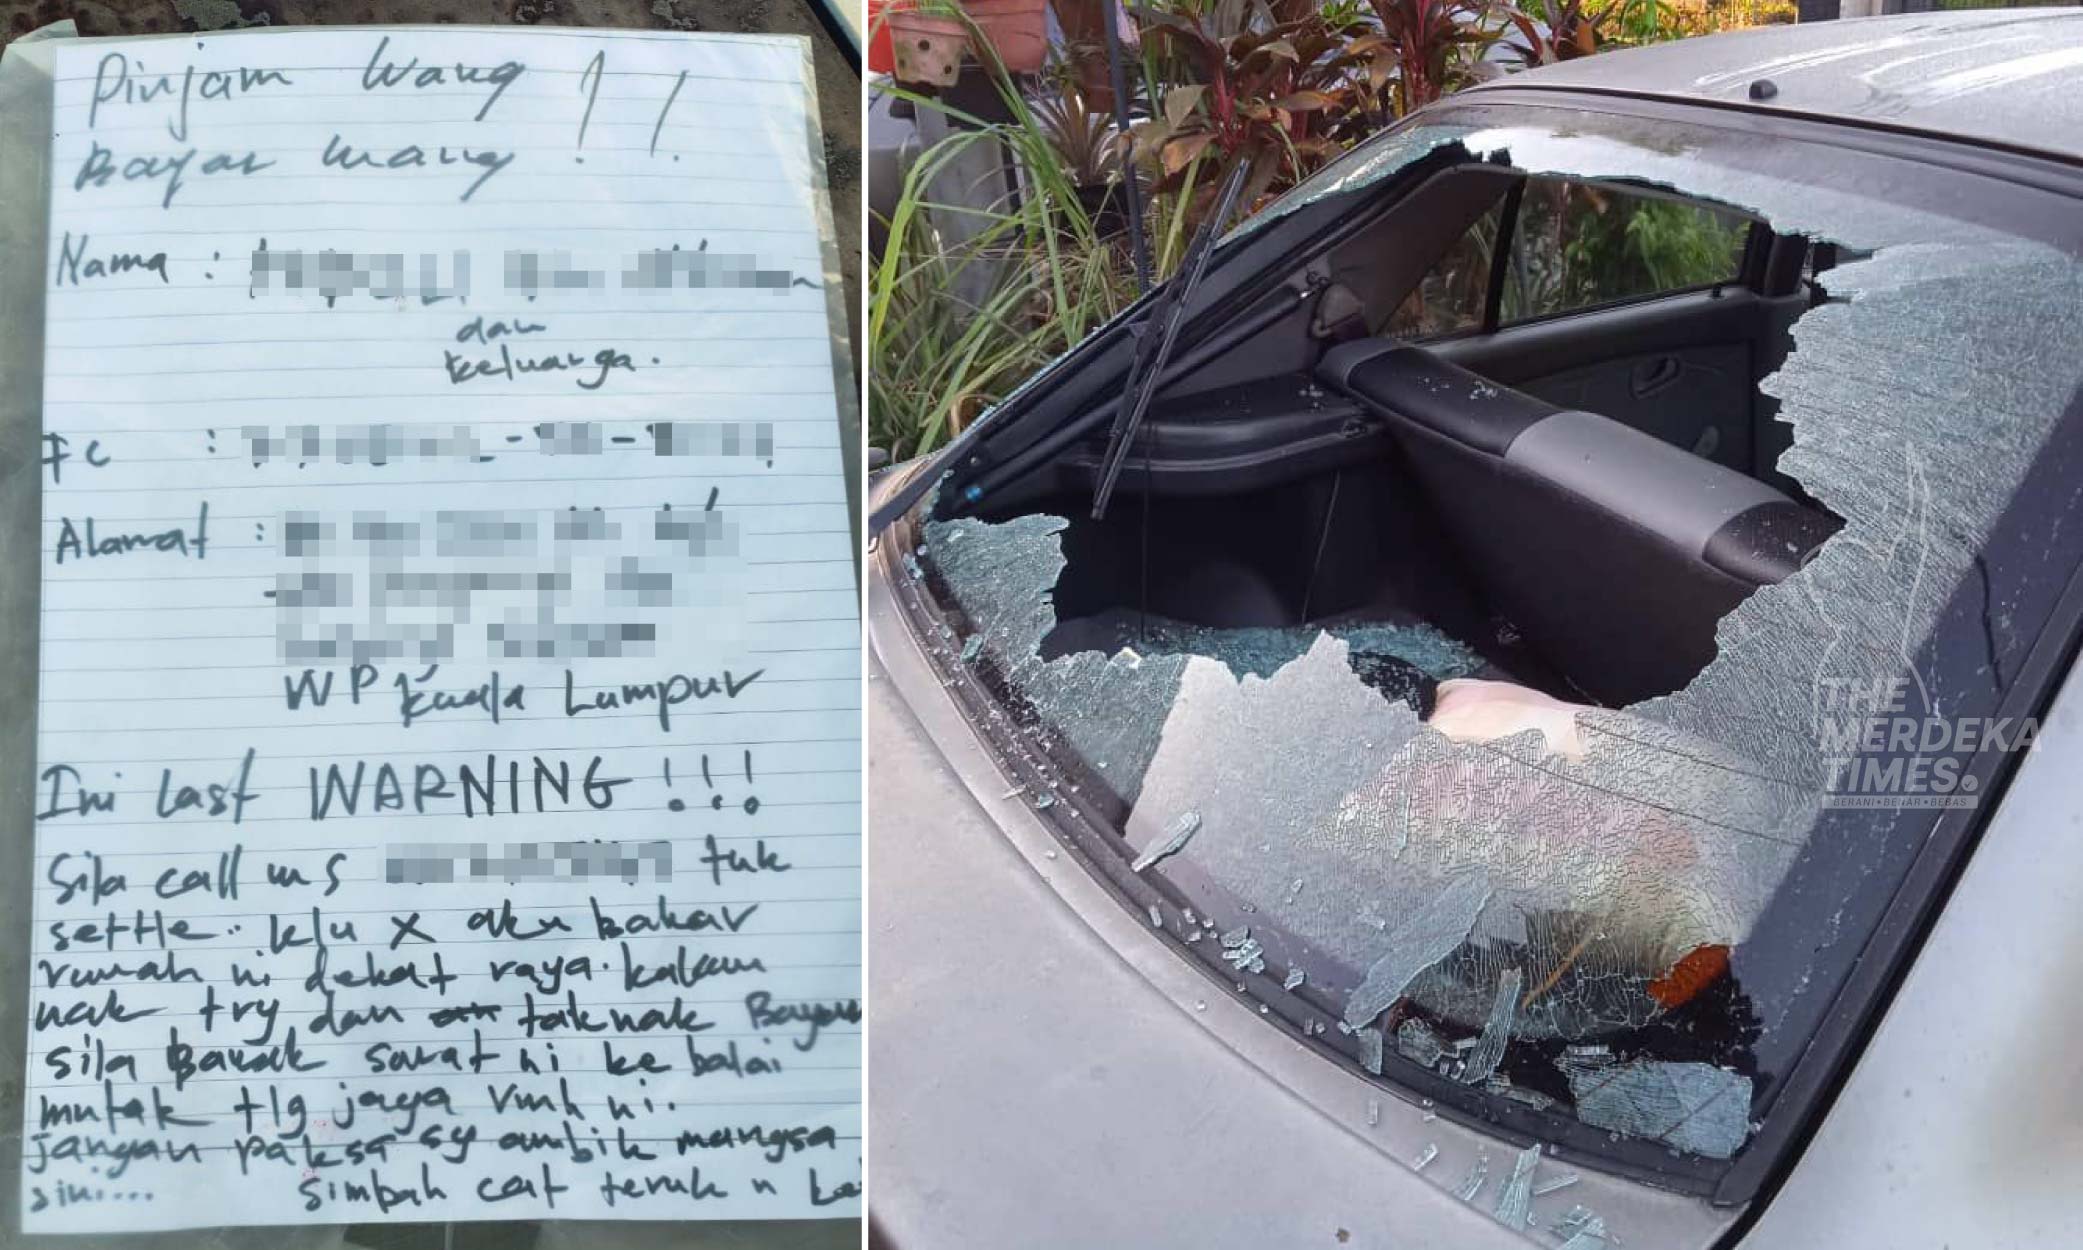 Pinjam wang !!
Bayar wang
Nama :
dan
keluarga.
IC :
Alamat :
WP Kuala Lumpur
Ini last WARNING !!!
Sila call ms tuk
settle.. klu x aku bakar
rumah ni dekat raya. kalau
nak try dan taknak Bayar
sila Bawak surat ni ke balai
mintak tlg jaga rmh ni.
jangan paksa sy ambik mangsa
sini.... simbah cat teruk n
THE
MERDEKA
TIMES.
BERANI • BENAR • BEBAS